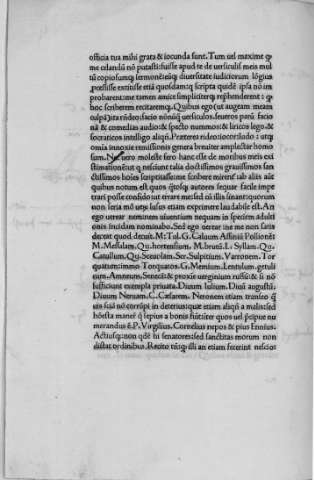 officia tua mihi grata & iocunda sunt. Tum uel maxime q
me celandū nō putasti: fuisse apud te de uersiculis meis mul
tū copiosumq; sermonē: eūq; diuersitate iudiciorum lōgius
processisse extitisse etiā quosdam: q scripta quidē ipsa nō im
probarent: me tamen amice simpliciterq; rephenderent: q
hoc scriberem recitaremq;. Quibus ego (ut augeam meam
culpā) ita rñdeo: facio nōnūq uersiculos seueros parū: facio
nā & comedias audio: & specto mimos: & liricos lego: &
socraticos intelligo aliqñ. Preterea rideo: iocor: ludo: utq;
omnia innoxie remissionis genera breuiter amplectar homo
sum. Nec uero moleste fero hanc esse de moribus meis exi
stimationē: ut q nesciunt talia doctissimos grauissimos san
ctissimos hoies scriptitasse: me scribere mirent. Ab aliis aūt
quibus notum est quos q̃tosq; autores sequar facile impe
trari posse confido: ut errare me: sed cū illis sinant: quorum
non seria mō: uerū lusus etiam exprimere laudabile est. An
ego uerear neminem uiuentium nequam in speciem adulti
onis incidam nominabo. Sed ego uerear ne me non satis
deceat quod decuit. M: Tul. G. Caluum Asinium Pollionē
M. Messalam. Qu. hortensium. M. brutū. L. Syllam. Qu.
Catullum. Qu. Sceuolam. Ser. Sulpitium. Varronem. Tor
quatum: immo Torquatos. G. Memium. Lentulum. getuli
cum. Anneum. Senecā: & proxie uerginium ruffū: & si nō
sufficiunt exempla priuata. Diuum Iulium. Diuū augustū.
Diuum Neruam. C. Cæsarem. Neronem etiam transeo q
uis sciā nō corrūpi in deterius: quæ etiam aliqñ a malis: sed
hōesta maner q sepius a bonis fiūt: iter quos uel p̃cipue nu
merandus ē. P. Virgilius. Cornelius nepos & pius Ennius.
Actiusq: non qdē hi senatores: sed sanctitas morum non
distat ordinibus. Recito tñ: q illi an etiam fecerint nescio: